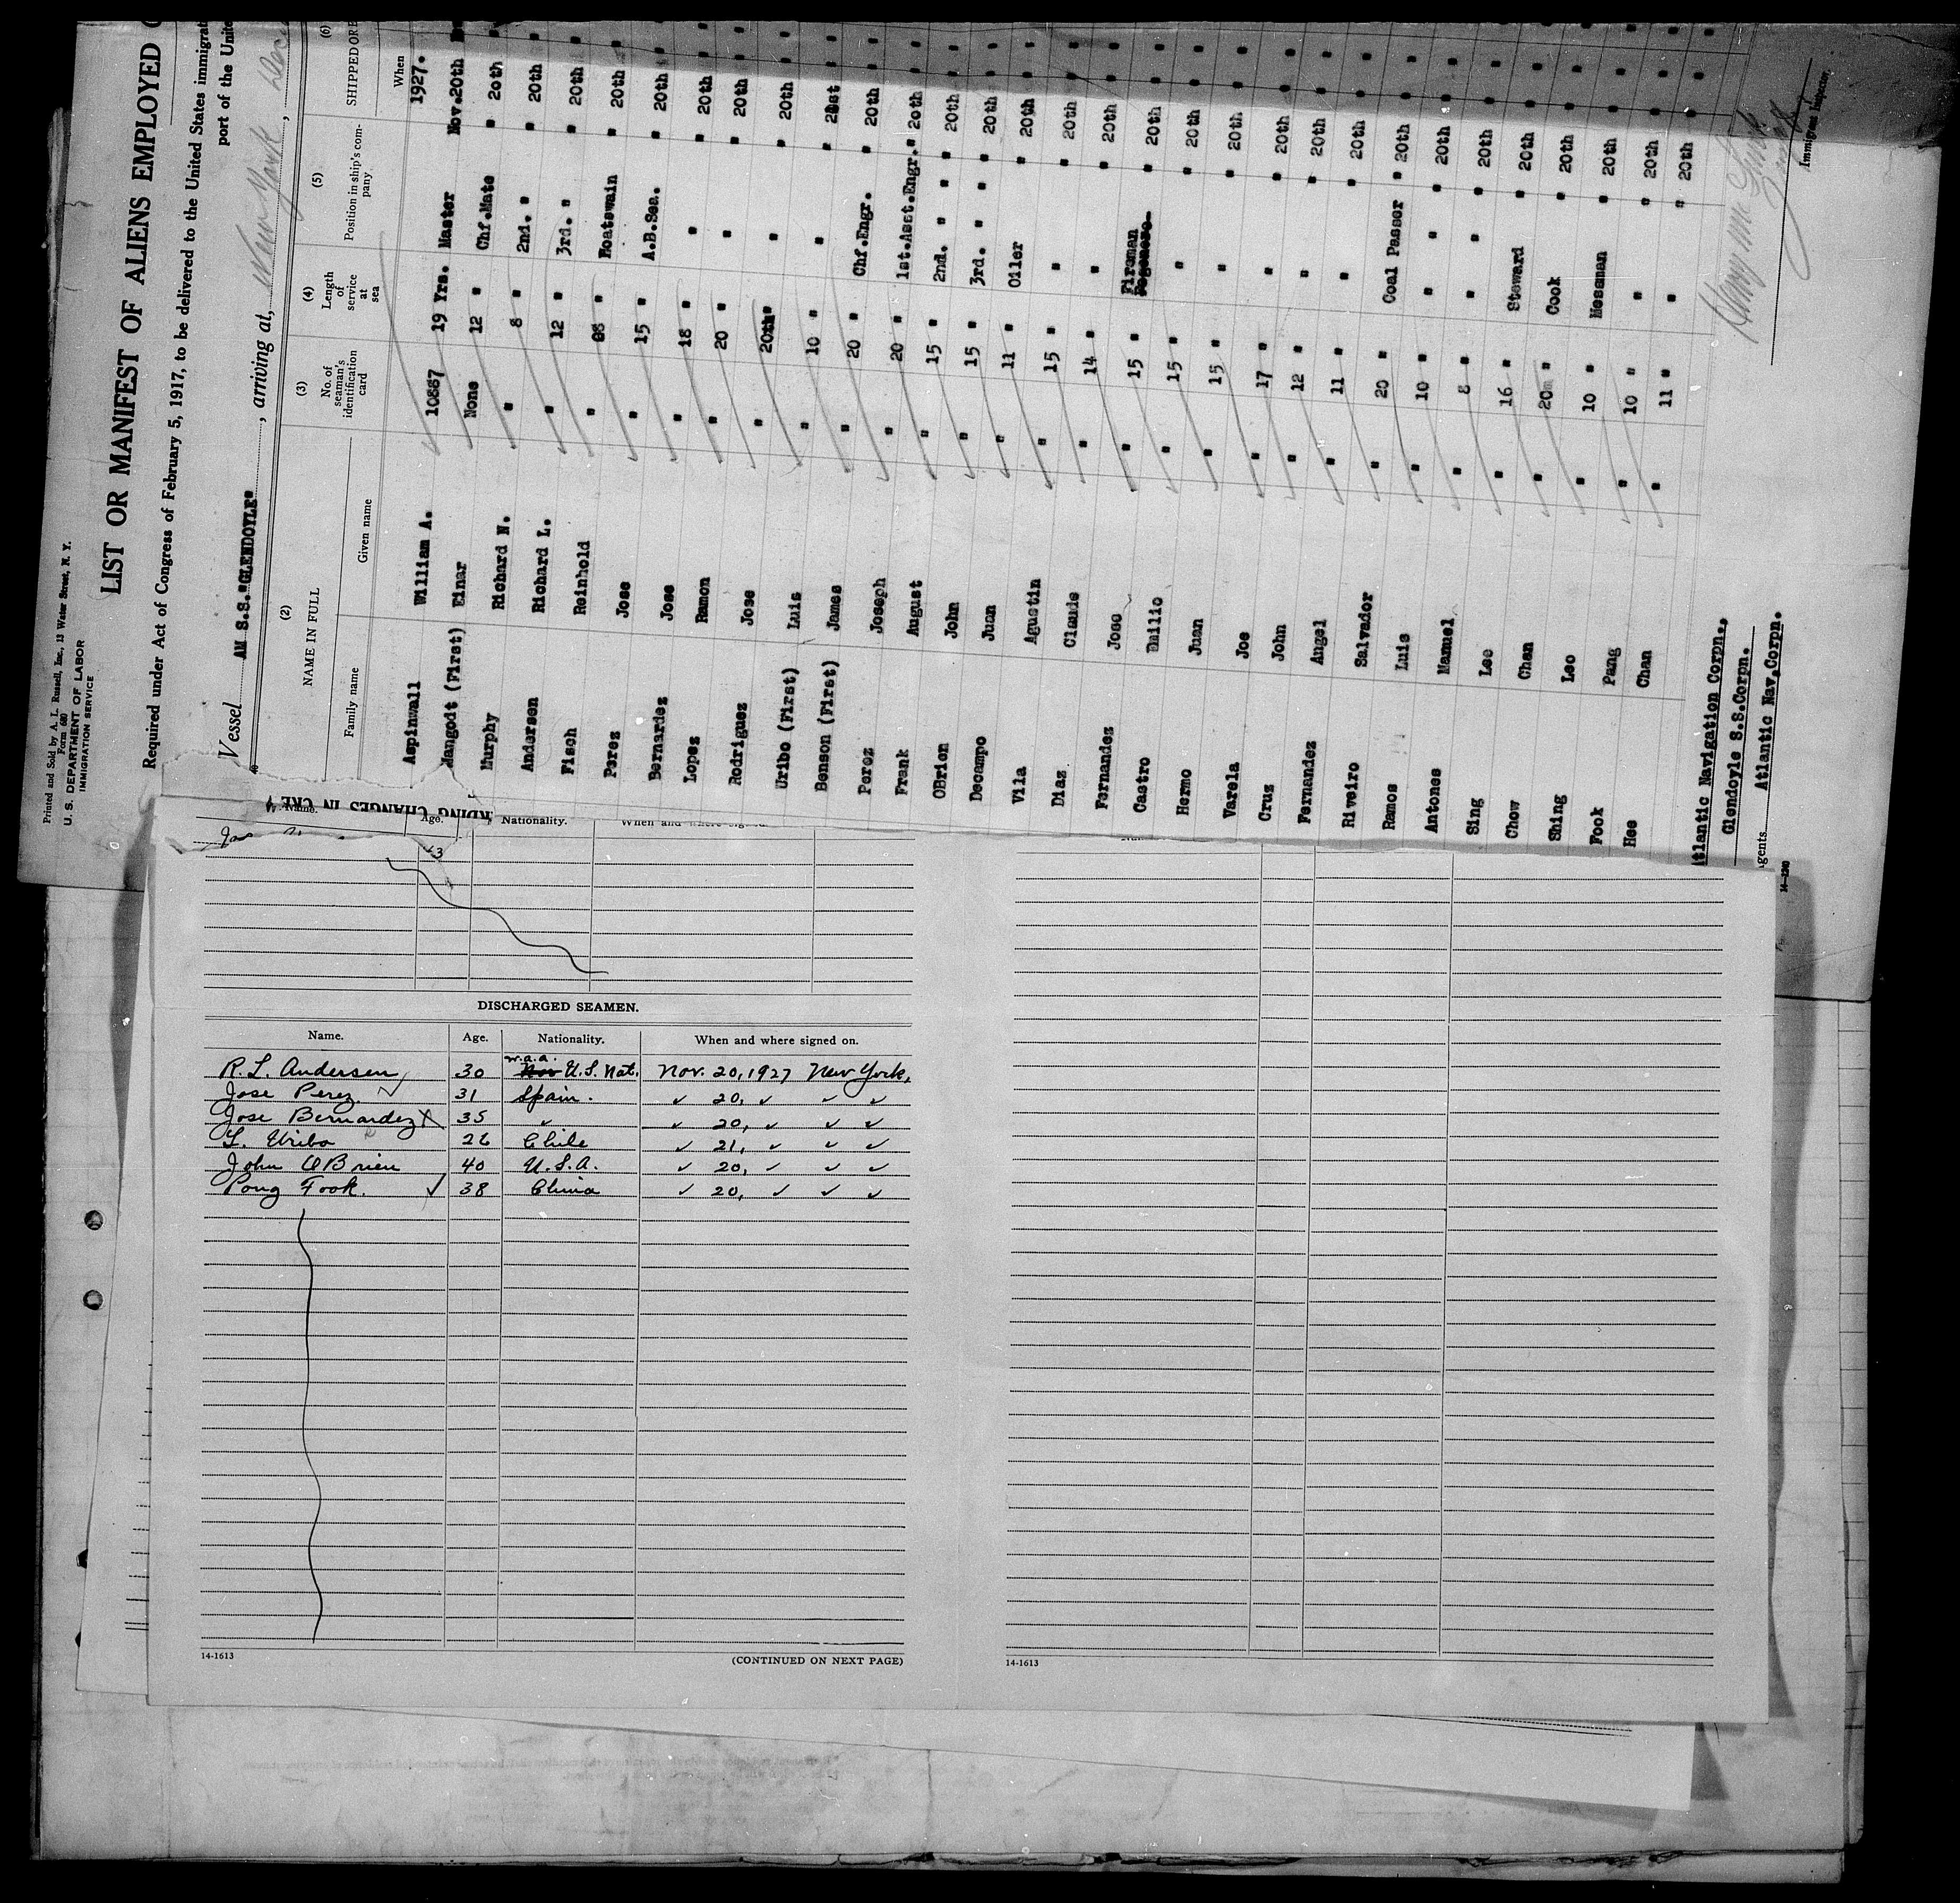 Printed and Sold by A. L. Russell, Inc., 13 Water Street, N. Y.
Form 680
U. S. DEPARTMENT OF LABOR
IMMIGRATION SERVICE
LIST OR MANIFEST OF ALIENS EMPLOYED
Required under Act of Congress of February 5, 1917, to be delivered to the United States immigrat
port of the Unit
Vessel AM S.S."GLENDOYLE", arriving at, New York,
(2) (3) (4) (5) (6)
NAME IN FULL No. of seaman's identification card Length of service at sea Position in ship's company SHIPPED OR E
Family name Given name When
1927.
Aspinwall William A. 10887 19 Yrs. Master Nov.20th
Mangodt (First) Einar None 12 " Chf.Mate " 20th
Murphy Richard N. " 8 " 2nd. " " 20th
Andersen Richard L. " 12 " 3rd. " " 20th
Fisch Reinhold " " Boatswain " 20th
Perez Jose " 15 " A.B.Sea. " 20th
Bernardez Jose " 18 " " " 20th
Lopez Ramon " 20 " " " 20th
Rodriguez Jose " 20 " " " 20th
Uribo (First) Luis " 10 " " " 21st
Benson (First) James " 20 " Chf.Engr. " 20th
Perez Joseph " 20 " 1st.Asst.Engr. " 20th
Frank August " 15 " 2nd. " " " 20th
OBrien John " 15 " 3rd. " " " 20th
Decampo Juan " 11 " Oiler " 20th
Vila Agustin " 15 " " " 20th
Diaz Claude " 14 " " " 20th
Fernandez Jose " 15 " Fireman " 20th
Castro Emilio " 15 " " " 20th
Hermo Juan " 15 " " " 20th
Varela Joe " 17 " " " 20th
Cruz John " 12 " " " 20th
Fernandez Angel " 11 " " " 20th
Riveiro Salvador " 20 " Coal Passer " 20th
Ramos Luis " 10 " " " 20th
Antones Manuel " 8 " " " 20th
Sing Lee " 16 " Steward " 20th
Chow Chen " 20 " Cook " 20th
Shing Leo " 10 " Messman " 20th
Fook Pang " 10 " " " 20th
Hee Chan " 11 " " " 20th
Atlantic Navigation Corpn.,
Glendoyle S.S.Corpn.
Agents Atlantic Nav.Corpn.
14-1240
Immigrant Inspector.
RDING CHANGES IN CREW
Name. Age. Nationality. When and where signed
DISCHARGED SEAMEN.
Name. Age. Nationality. When and where signed on.
w.a.a.
R. L. Andersen 30 Nor U.S. Nat. Nov. 20, 1927 New York,
Jose Perez. 31 Spain. " 20, " " "
Jose Bernardez 35 " " 20, " " "
L. Uribo 26 Chile " 21, " " "
John OBrien 40 U.S.A. " 20, " " "
Pong Fook. 38 China " 20, " " "
14-1613 (CONTINUED ON NEXT PAGE)
14-1613